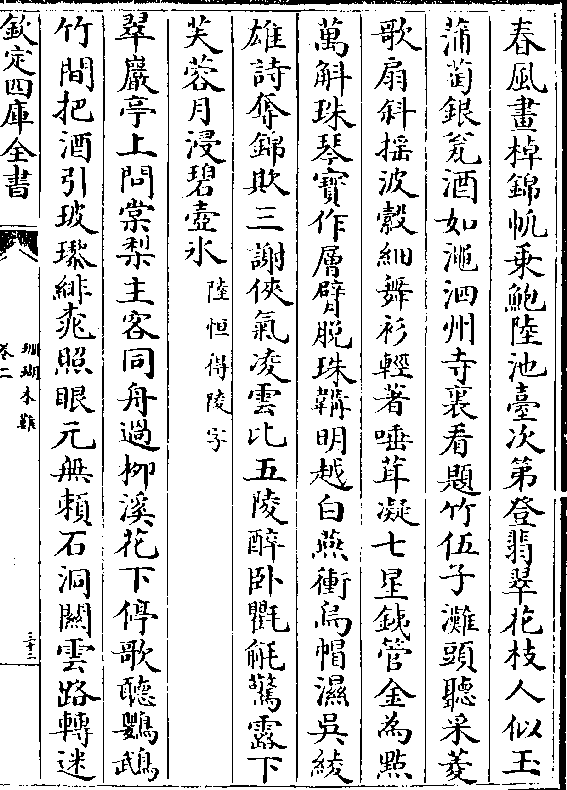 春風畫棹錦帆乗鮑陸池臺次第登翡翠花枝人似玉
蒲萄銀瓮酒如澠泗州寺裏看題竹伍子灘頭聽采菱
歌扇斜揺波縠細舞衫輕著唾茸凝七星鈸管金為點
萬斛珠琴寳作層臂脱珠鞲明越白燕衝烏帽濕吳綾
雄詩奪錦欺三謝俠氣凌雲比五陵醉卧氍毹驚露下
芙蓉月浸碧壺氷 陸恒得陵字
翠巖亭上問棠梨主客同舟過栁溪花下停歌聽鸚鵡
竹間把酒引玻瓈緋桃照眼元無頼石洞闗雲路轉迷
欽定四庫全書
珊瑚木難
卷二
三十三